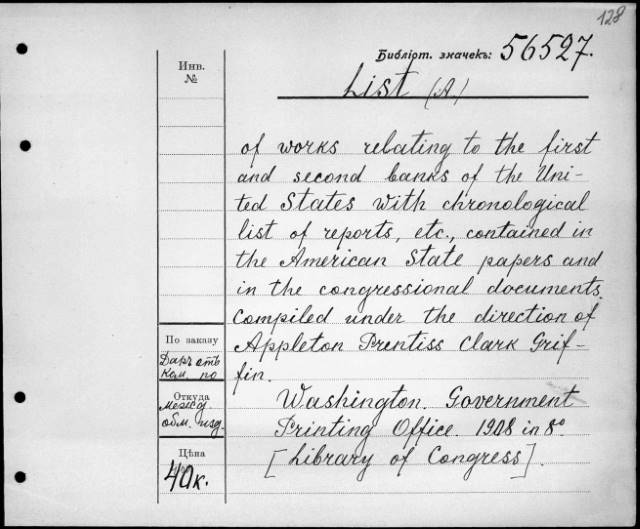 128
Библiот. значекъ: 56527.
Инв.
№
List (A.)
of works relating to the first
and second banks of the Uni-
ted States with chronological
list of reports, etc., contained in
the American State papers and
in the congressional documents.
Compiled under the direction of
Appleton Prentiss Clark Grif-
fin.
Washington. Government
Printing Office. 1908 in 8º.
[Library of Congress].
По заказу
Даръ отъ
Ком. по
Откуда
Межд.
обм. изд.
Цѣна
40 к.